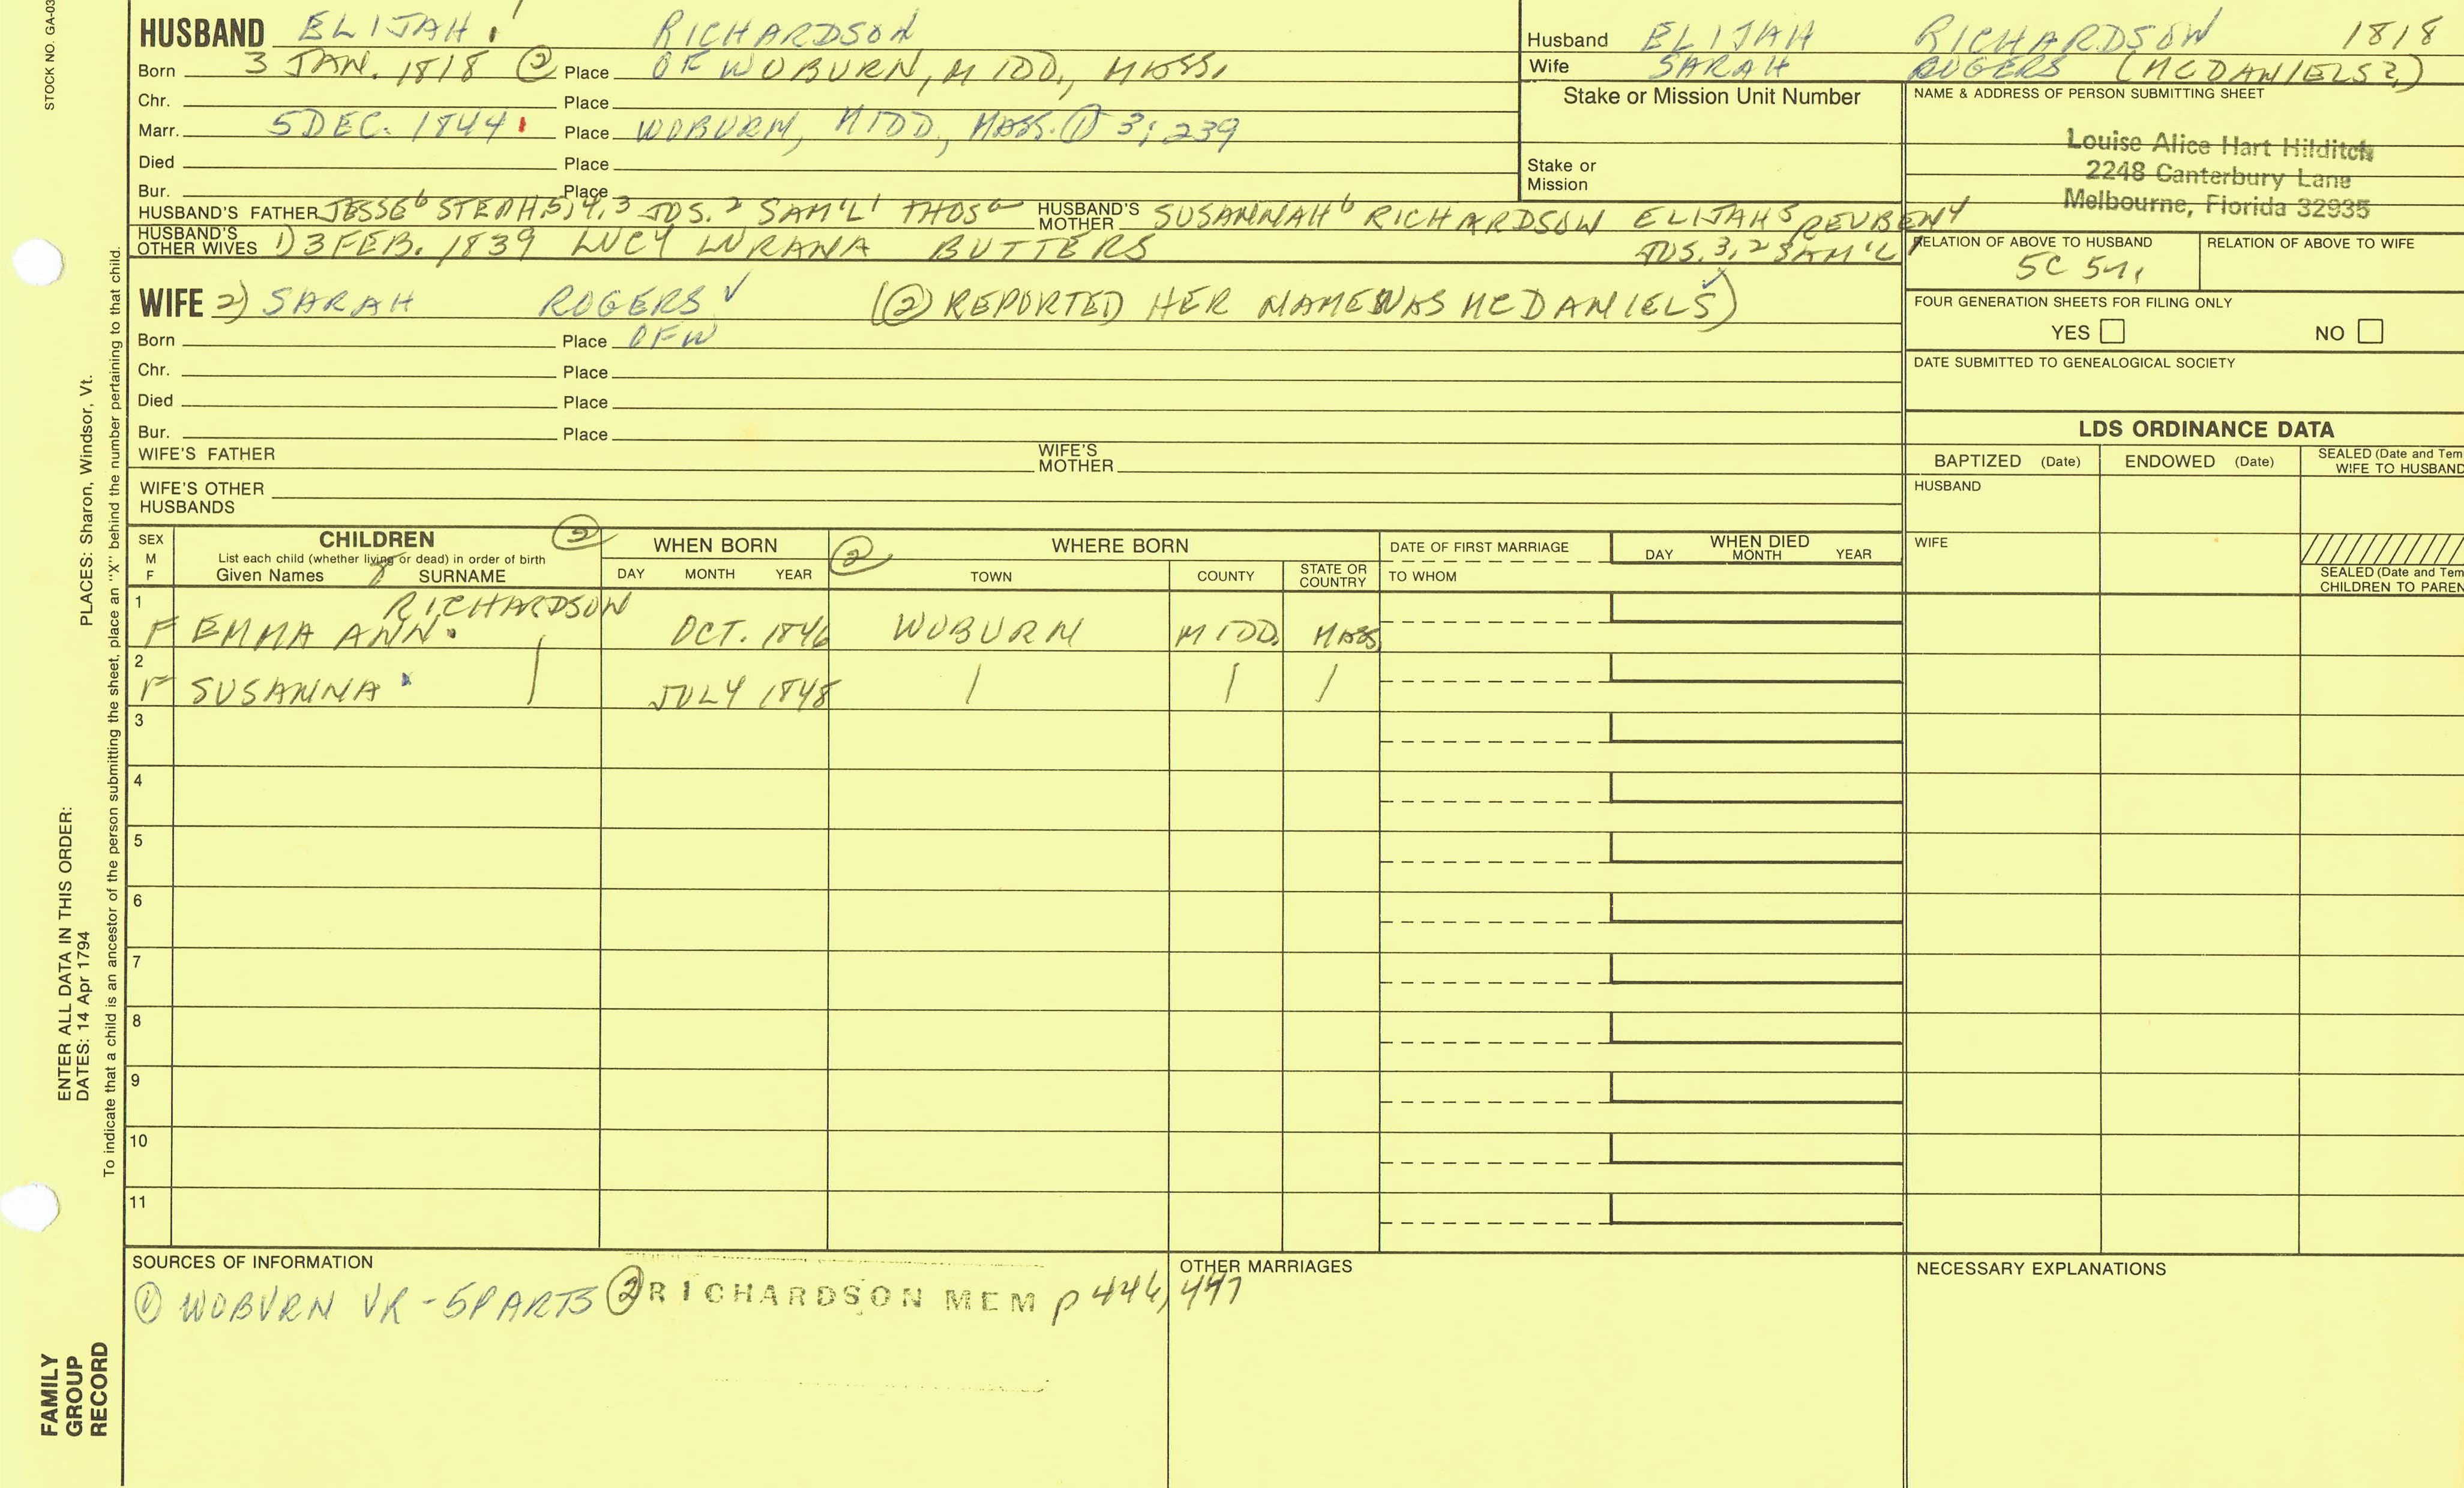 STOCK NO. GA-03
HUSBAND ELIJAH RICHARDSON
Born 3 JAN. 1818 ② Place OF WOBURN, MIDD., MASS.
Chr. Place
Marr. 5 DEC. 1844 Place WOBURN, MIDD, MASS. ① 3; 239
Died Place
Bur. Place
HUSBAND'S FATHER JESSE6 STEPH5,4,3 JOS.2 SAM'L1 THOSa HUSBAND'S MOTHER SUSANNAH6 RICHARDSON ELIJAH5 REUBEN4
JOS.3,2 SAM'L1
HUSBAND'S OTHER WIVES 1) 3 FEB. 1839 LUCY LURANA BUTTERS
WIFE 2) SARAH ROGERS ✓ (② REPORTED HER NAME WAS MCDANIELS)
Born Place OFW
Chr. Place
Died Place
Bur. Place
WIFE'S FATHER WIFE'S MOTHER
WIFE'S OTHER HUSBANDS
Husband ELIJAH RICHARDSON 1818
Wife SARAH ROGERS (MCDANIELS?)
Stake or Mission Unit Number
Stake or Mission
NAME & ADDRESS OF PERSON SUBMITTING SHEET
Louise Alice Hart Hilditch
2248 Canterbury Lane
Melbourne, Florida 32935
RELATION OF ABOVE TO HUSBAND RELATION OF ABOVE TO WIFE
5C
FOUR GENERATION SHEETS FOR FILING ONLY
YES NO
DATE SUBMITTED TO GENEALOGICAL SOCIETY
LDS ORDINANCE DATA
BAPTIZED (Date) ENDOWED (Date) SEALED (Date and Tem
WIFE TO HUSBAND
HUSBAND
WIFE
SEALED (Date and Tem
CHILDREN TO PAREN
SEX M F
CHILDREN ②
List each child (whether living or dead) in order of birth
Given Names SURNAME
WHEN BORN
DAY MONTH YEAR
② WHERE BORN
TOWN COUNTY STATE OR COUNTRY
DATE OF FIRST MARRIAGE
TO WHOM
WHEN DIED
DAY MONTH YEAR
1 F EMMA ANN RICHARDSON OCT. 1846 WOBURN MIDD. MASS.
2 F SUSANNA | JULY 1848 | | |
3
4
5
6
7
8
9
10
11
SOURCES OF INFORMATION
① WOBURN VR - 5 PARTS ② RICHARDSON MEM p 446, 447
OTHER MARRIAGES
NECESSARY EXPLANATIONS
ENTER ALL DATA IN THIS ORDER:
DATES: 14 Apr 1794 PLACES: Sharon, Windsor, Vt.
To indicate that a child is an ancestor of the person submitting the sheet, place an "X" behind the number pertaining to that child.
FAMILY
GROUP
RECORD